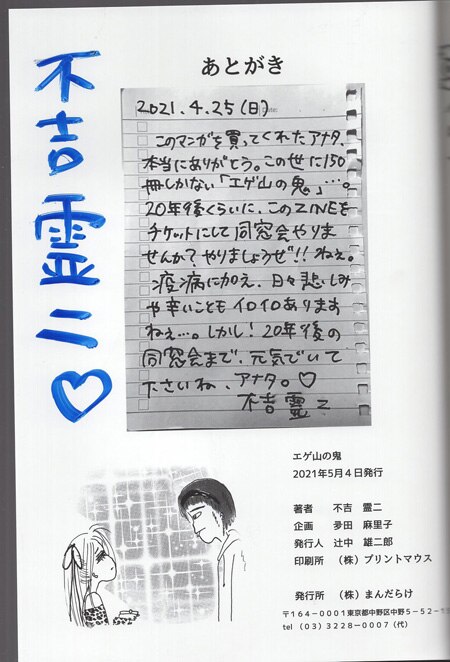 不吉霊二♡
あとがき
2021.4.25(日)
このマンガを買ってくれたアナタ、
本当にありがとう。この世に150
冊しかない「エゲ山の鬼」…。
20年後くらいに、このZINEを
チケットにして同窓会やりま
せんか?やりましょうぜ!!ねぇ。
疫病に加え、日々悲しみ
や辛いこともイロイロあります
ねぇ…。しかし!20年後の
同窓会まで、元気でいて
下さいね、アナタ。♡
不吉霊二
エゲ山の鬼
2021年5月4日発行
著者 不吉 霊二
企画 夢田 麻里子
発行人 辻中 雄二郎
印刷所 (株)プリントマウス
発行所 (株)まんだらけ
〒164-0001東京都中野区中野5-52-15
tel (03)3228-0007(代)